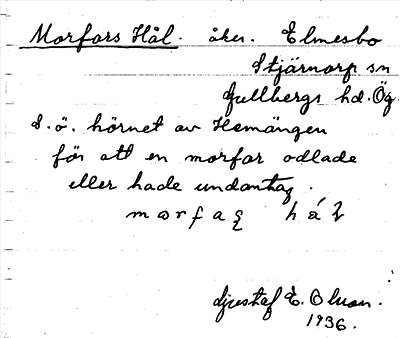 Morfors Hål. åker. Elmesbo
Stjärnorp sn
Gullbergs hd. Ög.
S.ö. hörnet av Hemängen
för att en morfar odlade
eller hade undantag.
Gustaf E. Olson.
1936.